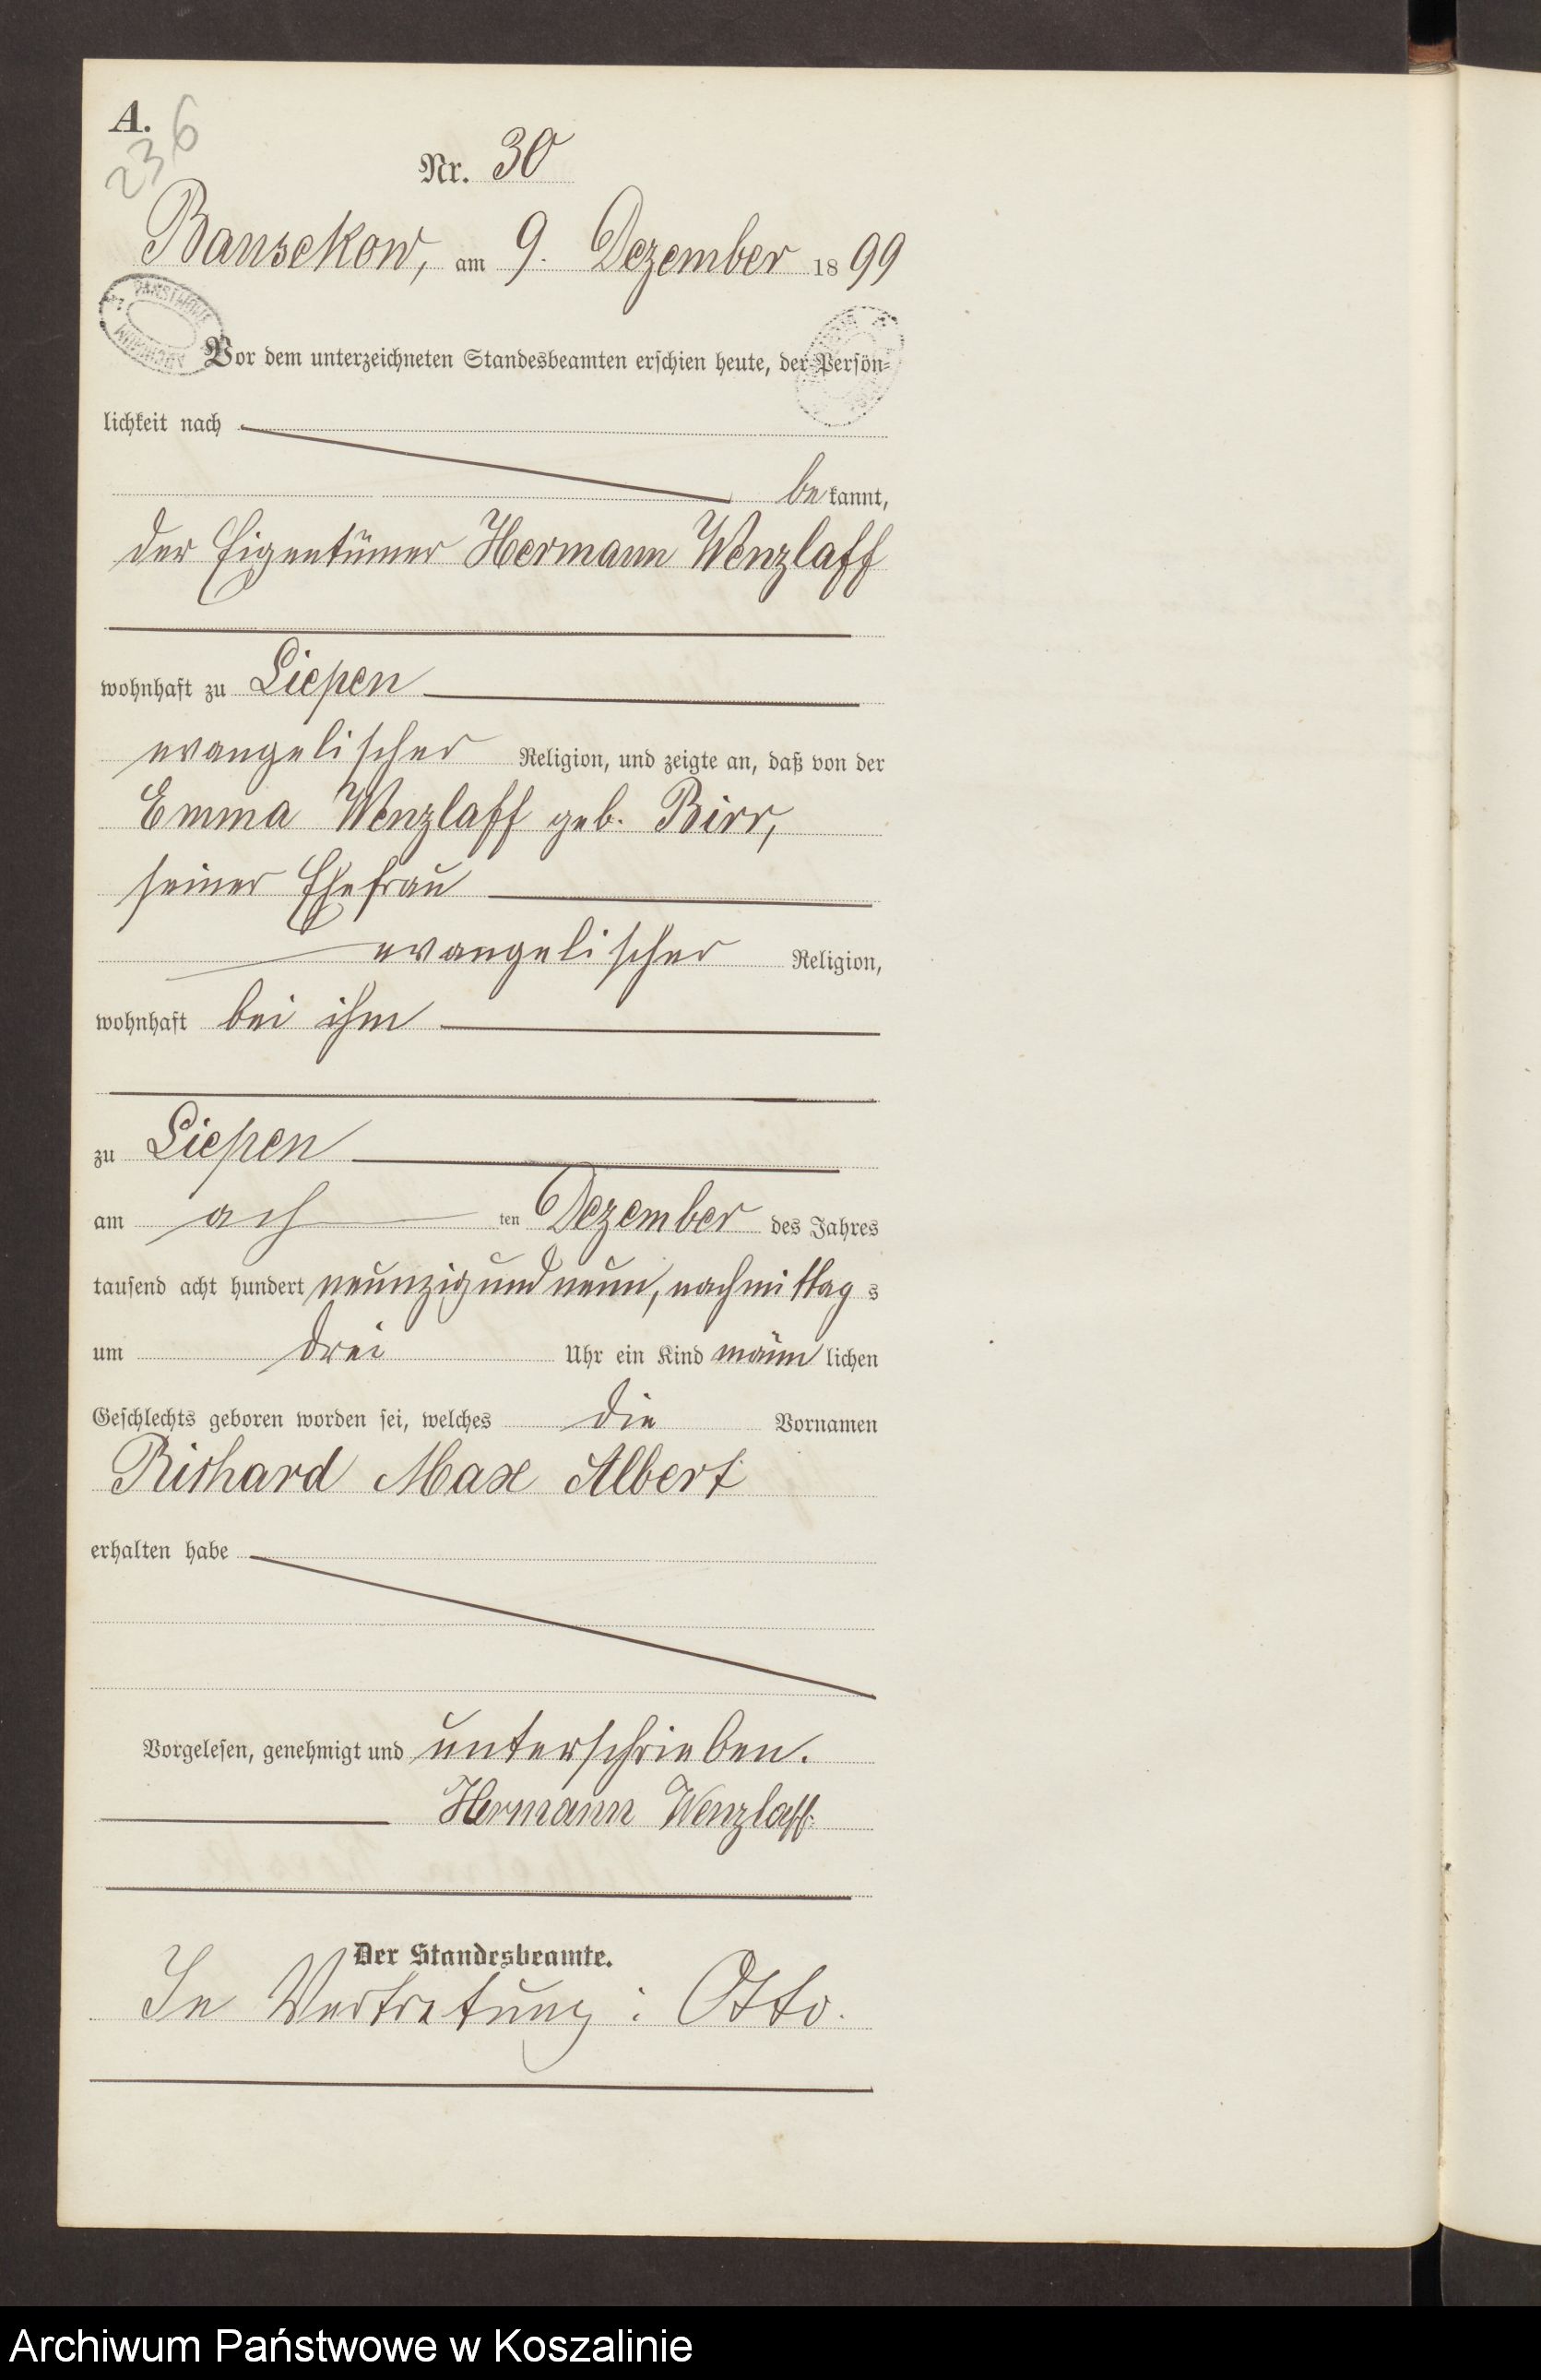 A.
236
Nr. 30
Bansekow, am 9. Dezember 1899
Vor dem unterzeichneten Standesbeamten erschien heute, der Persön-
lichkeit nach
bekannt,
der Eigentümer Hermann Wenzlaff
wohnhaft zu Liepen
evangelischer Religion, und zeigte an, daß von der
Emma Wenzlaff geb. Birr,
seiner Ehefrau
evangelischer Religion,
wohnhaft bei ihm
zu Liepen
am ach ten Dezember des Jahres
tausend acht hundert neunzig und neun, nachmittag s
um drei Uhr ein Kind männlichen
Geschlechts geboren worden sei, welches die Vornamen
Richard Max Albert
erhalten habe
Vorgelesen, genehmigt und unterschrieben.
Hermann Wenzlaff
Der Standesbeamte.
In Vertretung: Otto.
Archiwum Państwowe w Koszalinie